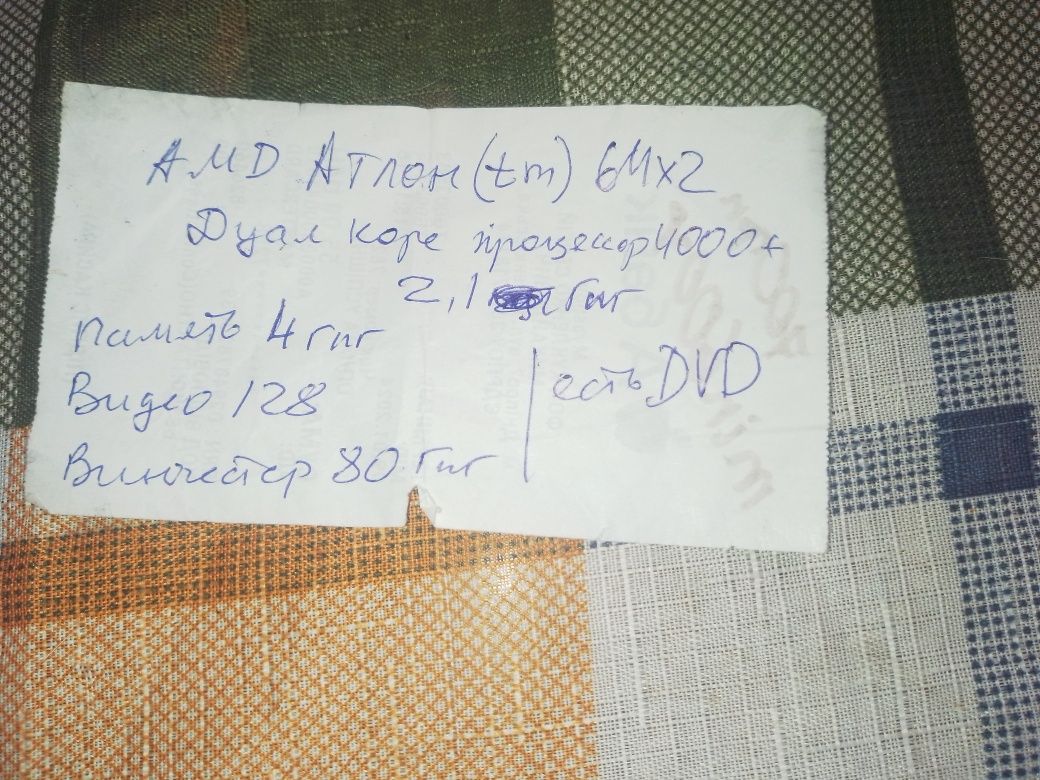 АМД Атлон (tm) 64x2
Дуал коре процессор 4000+
2,1 Гиг
Память 4 гиг
Видео 128
Винчестер 80 Гиг
есть DVD